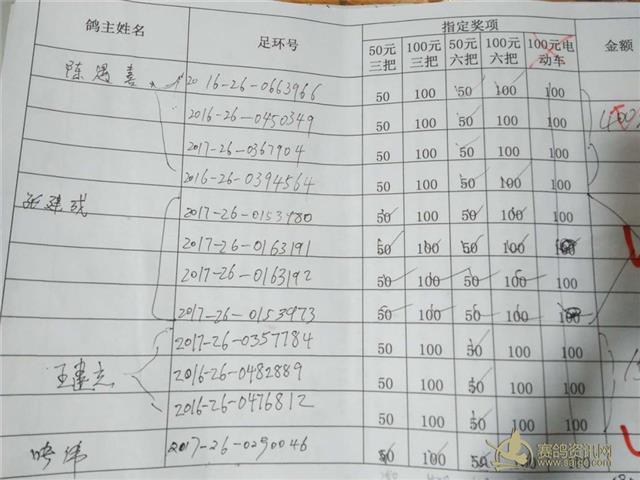 鸽主姓名 足环号 指定奖项 金额
50元三把 100元三把 50元六把 100元六把 100元电动车
2016-26-0663966 50 100 50 100 100
2016-26-0450349 50 100 50 100 100
2017-26-0367904 50 100 50 100 100
2016-26-0394564 50 100 50 100 100
2017-26-0153980 50 100 50 100 100
2017-26-0163191 50 100 50 100 100
2017-26-0163192 50 100 50 100 100
2017-26-0153973 50 100 50 100 100
2017-26-0357784 50 100 50 100 100
王建杰 2016-26-0482889 50 100 50 100 100
2016-26-0476812 50 100 50 100 100
2017-26-0290046 50 100 50 100 100
赛鸽资讯网